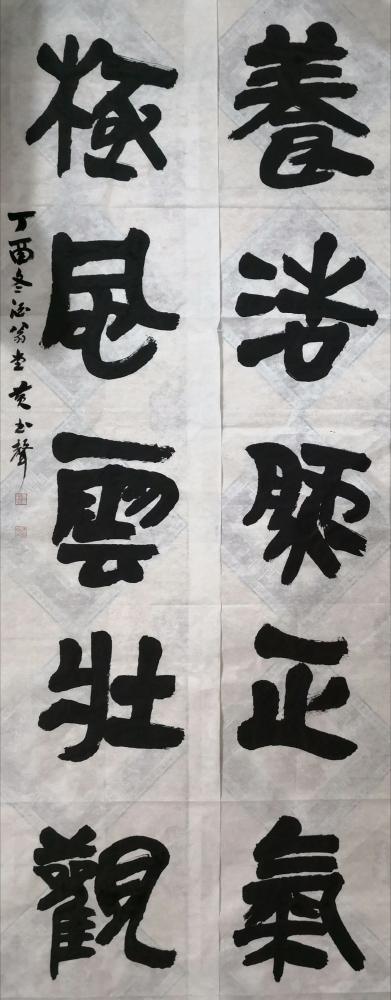 養浩然正氣
極風雲壯觀
丁酉冬翁堂黄聲